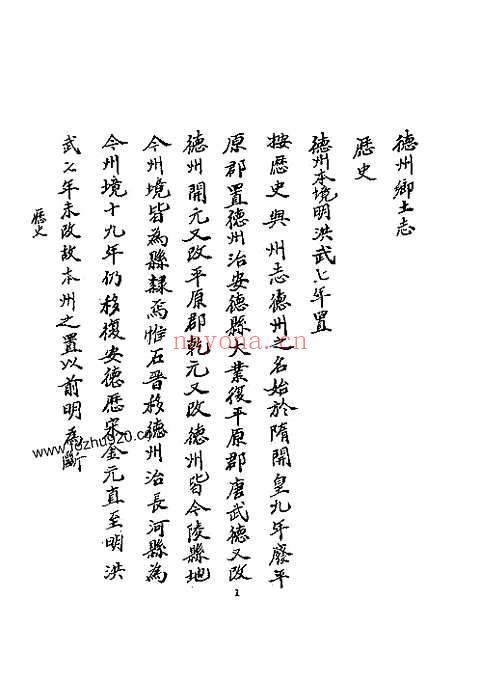 德州鄉土志
歷史
德州本境明洪武七年置
按歷史與州志德州之名始於隋開皇九年廢平
原郡置德州治安德縣大業復平原郡唐武德又改
德州開元又改平原郡乾元又改德州皆今陵縣地
今州境皆為縣隸焉惟石晉移德州治長河縣為
今州境十九年仍移復安德歷宋金元直至明洪
武七年未改故本州之置以前明為斷
歷史
1
nayona.cn
www.fozhu920.com